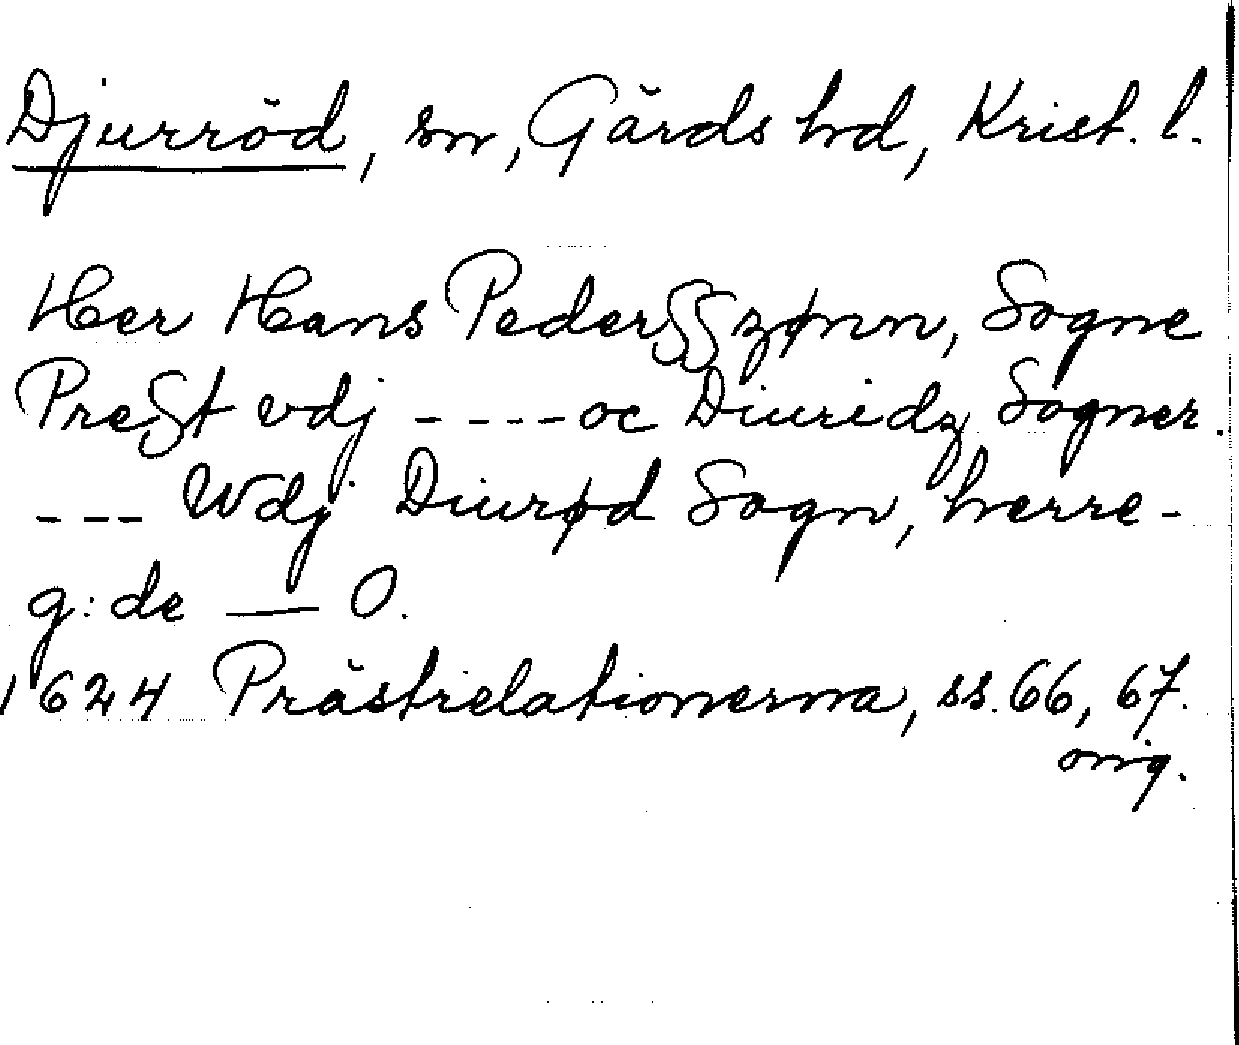 Djurröd, sn, Gärds hd, Krist. l.
Her Hans Pederſſzønn, Sogne
Preſt vdj ---- oc Diuridz Sogner.
--- Wdj Diurød Sogn, herre-
g:de — O.
1624 Prästrelationerna, ss. 66, 67.
orig.